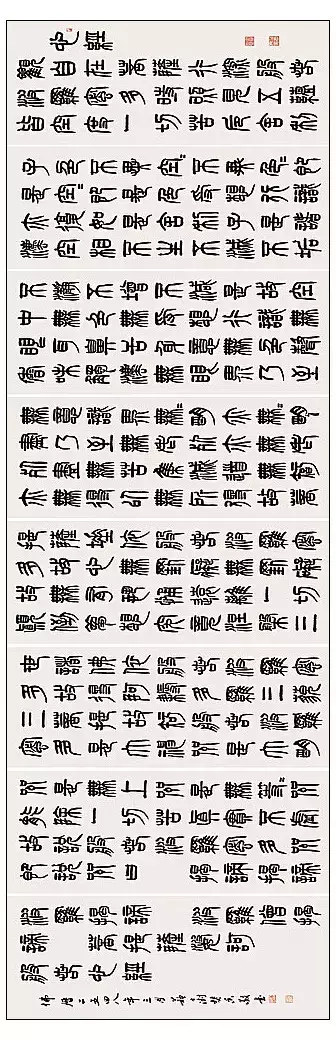 心經
觀自在菩薩行深般若
波羅蜜多時照見五蘊
皆空度一切苦厄舍利
子色不異空〻不異色即
是空〻即是色受想行識
亦復如是舍利子是諸
法空相不生不滅不垢
不淨不增不減是故空
中無色無受想行識無
眼耳鼻舌身意無色聲
香味觸法無眼界乃至
無意識界無〻明亦無〻明
盡乃至無老死亦無老
死盡無苦集滅道無智
亦無得以無所得故菩
提薩埵依般若波羅蜜
多故心無罣礙無罣礙
故無有恐怖遠離一切
顛倒夢想究竟涅槃三
世諸佛依般若波羅蜜
多故得阿耨多羅三藐
三菩提故知般若波羅
蜜多是大神咒是大明
咒是無上咒是無等〻咒
能除一切苦真實不虛
故說般若波羅蜜多咒
即說咒曰 揭諦揭諦
波羅揭諦 波羅僧揭
諦 菩提薩婆訶
般若心經
佛曆二五四八年三月